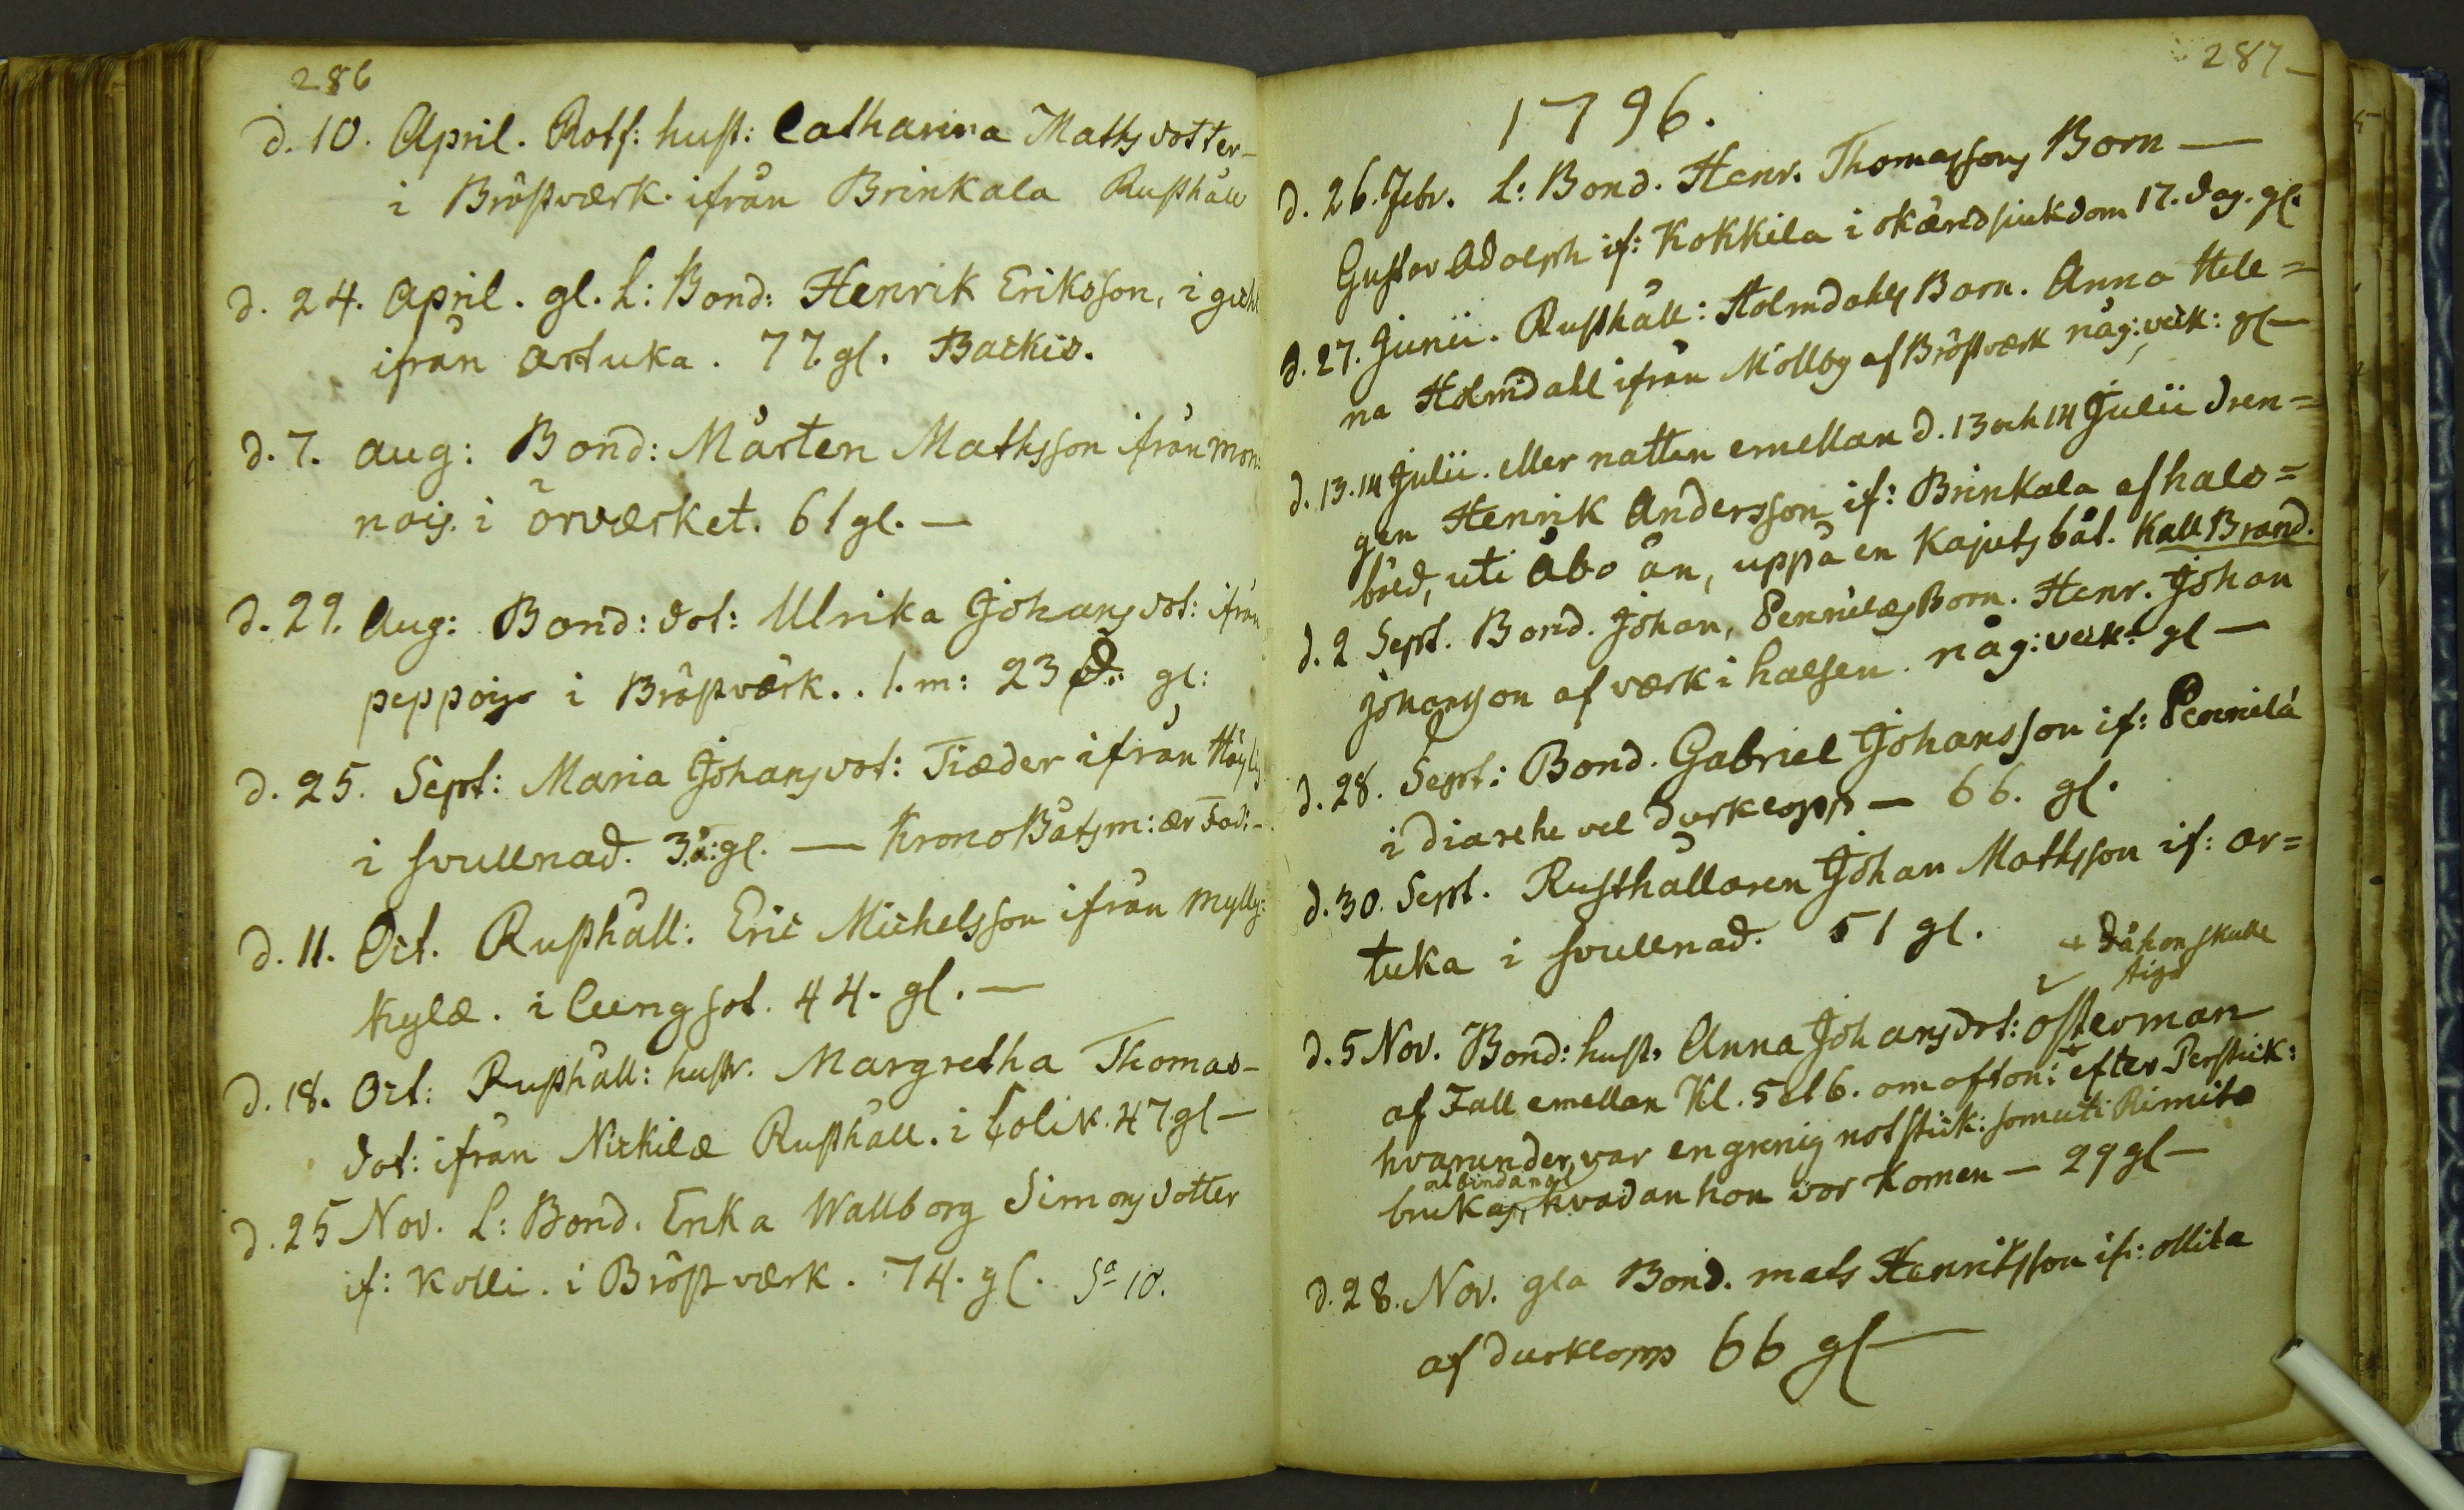 286
d. 10. April. Rotf: hust: Catharina Mathsdotter-
i Bröstværk. ifrån Brinkala Rusthåll
d. 24. April. gl. L: Bond: Henrik Eriksson, i
ifrån Artuka. 77. gl. Backis.
d. 7. Aug: Bond: Mårten Mathsson ifrån Mon:
nois. i örværket. 61 gl. —
d. 29. Aug: Bond: dot: Ulrika Johansdot: ifrån
peppois i Bröstværk. . 1. m: 23 D: gl:
d. 25. Sept: Maria Johansdot: Tiæder ifrån
i svullnad. 3.å: gl. — KronoBåtsm:
d. 11. Oct. Rusthåll: Eric Michelsson ifrån Mylly=
kylæ. i lungsot. 44. gl. —
d. 18. Oct: Rusthåll: hustr. Margretha Thomas-
dot: ifrån Nickilæ Rusthåll. i Colik. 47 gl —
d. 25 Nov. L: Bond. Erika Wallborg Simonsdotter
if: Kolli. i Bröstværk. 74. gl. Sa 10.
287
1796.
d. 26. Febr. L: Bond. Henr. Thomassons Barn —
Gustav Adolph if: Kokkila i okændsiukdom 17. dag. gl.
d. 27. Junii. Rusthåll: Holmdahls Barn. Anna Hele=
na Holmdahl ifrån Möllby af Bröstværk någ: veck: gl —
d. 13.14 Julii. eller natten emellan d. 13 och 14 Julii dren=
gen Henrik Andersson if: Brinkala af hals=
böld, uti Åbo ån, uppå en Kajutsbåt. Kall Brand.
d. 2 Sept. Bond. Johan, Pennilæs Barn. Henr. Johan
Johansson af værk i halsen. någ: veck: gl —
d. 28. Sept: Bond. Gabriel Johansson if: Pennilá
i diarehe vel durklopp — 66. gl.
d. 30. Sept. Rusthållaren Johan Mathsson if: Ar=
tuka i svullnad. 51 gl.
+ då hon skulle
stiga
d. 5 Nov. Bond: hust: Anna Johansdot: österman
af Fall emellan Kl. 5 el 6. om afton: efter
hvarunder var en grenig notstick: som uti Rimito
brukas, hvadan hon var komen — 29 gl —
d. 28. Nov. gla Bond. Mats Henriksson if: ollila
af durklopp 66 gl —